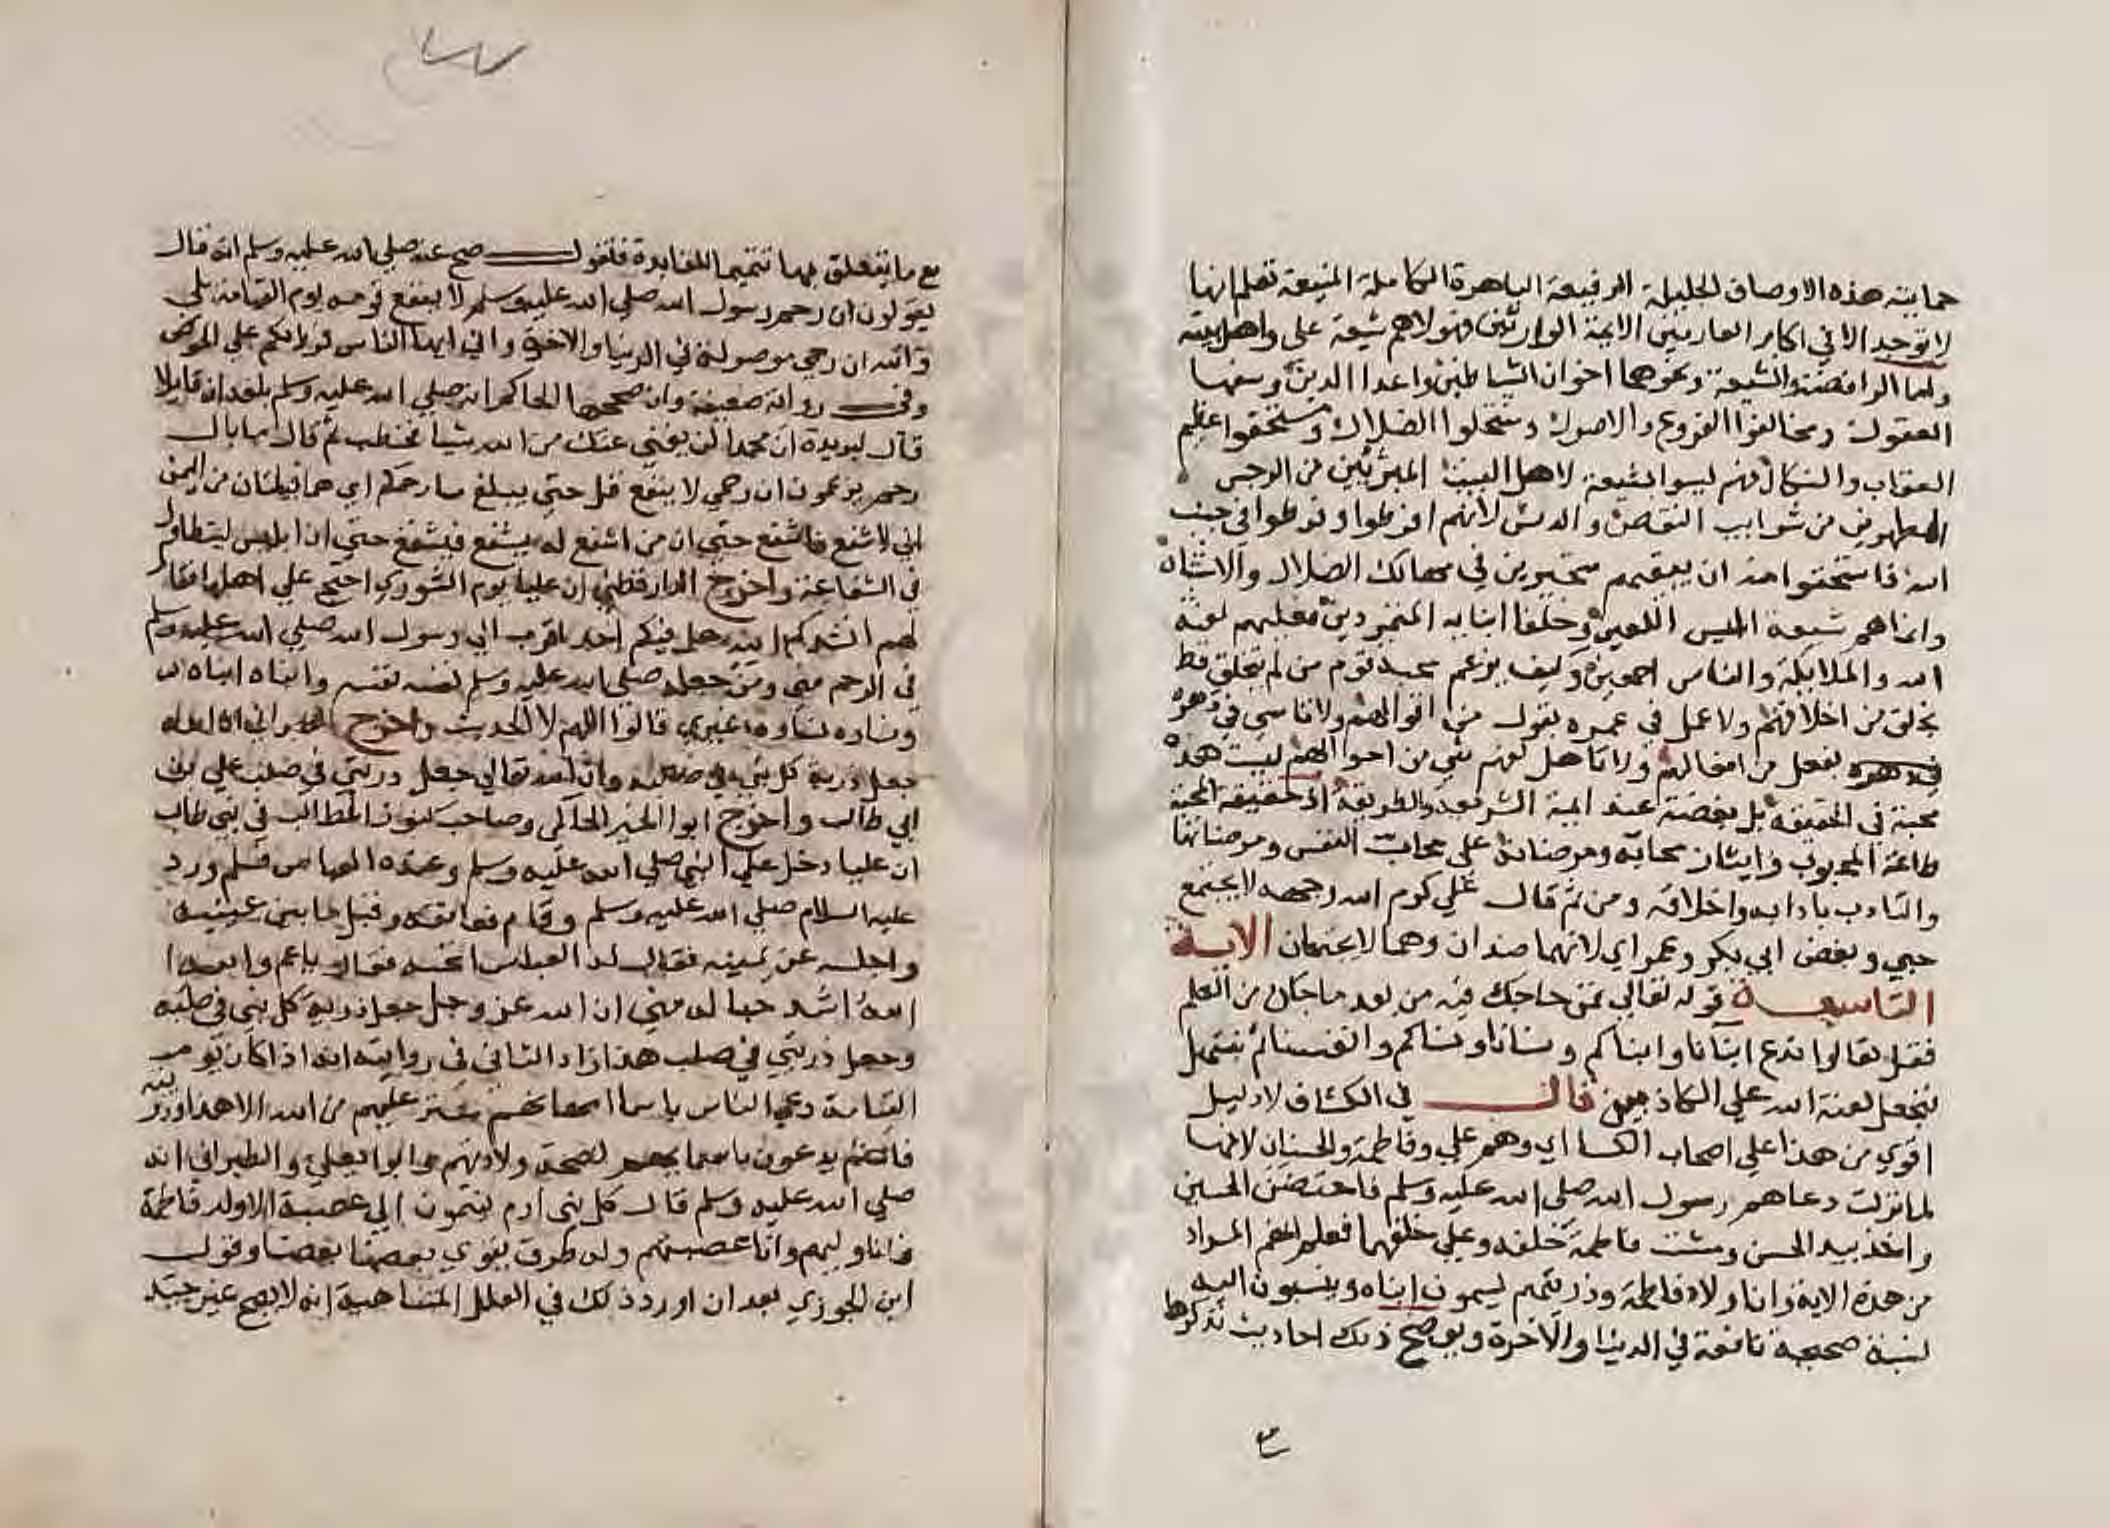 حمايته هذه الاوصاف الجليلة الرفيعة الباهرة الكاملة المنيعة تعلم انها
لا توجد الا في اكابر العارفين الايمة الوارثين فهولاهم شيعة على واهل بيته
واما الرافضة والشيعة ونحوهما اخوان الشياطين واعدا الدين وسفها
العقول ومخالفوا الفروع والاصول ومنتحلوا الضلال ومستحقوا عظيم
العقاب والنكال فهم ليسوا بشيعة لاهل البيت المبرئين من الرجس
المطهرين من شوايب النقص والدنس لانهم افرطوا وفرطوا في جنب
الله فاستحقوا منه ان يبقيهم متحيرين في مهالك الضلال والاشتباه
وانما هم شيعة ابليس اللعين وخلفا ابنايه المتمردين فعليهم لعنة
الله والملايكة والناس اجمعين وكيف يزعم محبة قوم من لم يتخلق قط
بخلق من اخلاقهم ولا عمل في عمره بقول من اقوالهم ولا تاسي في دهره
بفعل من افعالهم ولا تاهل لفهم شي من احوالهم ليست هذه
محبة في الحقيقة بل بغضة عند ايمة الشريعة والطريقة اذ حقيقة المحبة
طاعة المحبوب وايثار محابه ومرضاته على محاب النفس ومرضاتها
والتادب بادابه واخلاقه ومن ثم قال علي كرم الله وجهه لا يجتمع
حبي وبغض ابي بكر وعمر اي لانهما ضدان وهما لا يجتمعان الاية
التاسعة قوله تعالي فمن حاجك فيه من بعد ما جاك من العلم
فقل تعالوا ندع ابنانا وابناكم ونسانا ونساكم وانفسنا ثم نبتهل
فنجعل لعنة الله علي الكاذبين قال في الكشاف لا دليل
اقوي من هذا علي اصحاب الكسا اي وهم علي وفاطمة والحسنان لانها
لما نزلت دعاهم رسول الله صلى الله عليه وسلم فاحتضن الحسين
واخذ بيد الحسن ومشت فاطمة خلفه وعلي خلفهما فعلم انهم المراد
من هذه الاية وان اولاد فاطمة وذريتهم يسمون ابناه وينسبون اليه
نسبة صحيحة نافعة في الدنيا والاخرة ويوضح ذلك احاديث نذكرها
مع ما يتعلق بها تتميما للفايدة فنقول صح عنه صلي الله عليه وسلم انه قال
يقولون ان رحم رسول الله صلي الله عليه وسلم لا ينفع قومه يوم القيامة بلي
والله ان رحمي موصولة في الدنيا والاخرة واني ايها الناس فرط لكم علي الحوض
وفي رواية ضعيفة وان صححها الحاكم انه صلي الله عليه وسلم بلغه ان قايلا
قال لبريدة ان محمدا لن يغني عنك من الله شيا فخطب ثم قال ما بال
رحمي يزعمون ان رحمي لا ينفع بل حتي يبلغ حا وحكم اي هما قبيلتان من اليمن
اني لاشفع فاشفع حتي ان من اشفع له يشفع فيشفع حتي ان ابليس ليتطاول
في الشفاعة واخرج الدارقطني ان عليا يوم الشوري احتج علي اهلها فقال
لهم انشدكم الله هل فيكم احد اقرب الي رسول الله صلي الله عليه وسلم
في الرحم مني ومن جعله صلي الله عليه وسلم نفسه نفسه وابناه ابناه
ونساه نساوه غيري قالوا اللهم لا الحديث واخرج الطبراني ان الله
جعل ذرية كل نبي في صلبه وان الله تعالي جعل ذريتي في صلب علي بن
ابي طالب واخرج ابوا الخير الحاكمي وصاحب كنوز المطالب في بني طالب
ان عليا دخل علي النبي صلي الله عليه وسلم وعنده العباس فسلم ورد
عليه السلام صلي الله عليه وسلم وقام فعانقه وقبل ما بين عينيه
واجلسه عن يمينه فقال له العباس اتحبه فقال يا عم والله
الله اشد حبا له مني ان الله عز وجل جعل ذرية كل نبي في صلبه
وجعل ذريتي في صلب هذا زاد الثاني في روايته انه اذا كان يوم
القيامة دعي الناس باسما امهاتهم ستر عليهم من الله الا هذا وذريته
فانهم يدعون باسمايهم لصحة ولادتهم ابوا يعلي والطبراني انه
صلي الله عليه وسلم قال كل بني ادم ينتمون الي عصبة الا ولد فاطمة
فانا وليهم وانا عصبتهم وله طرق يقوي بعضها بعضا وقول
ابن الجوزي بعد ان اورد ذلك في العلل المتناهية انه لا يصح غير جيد